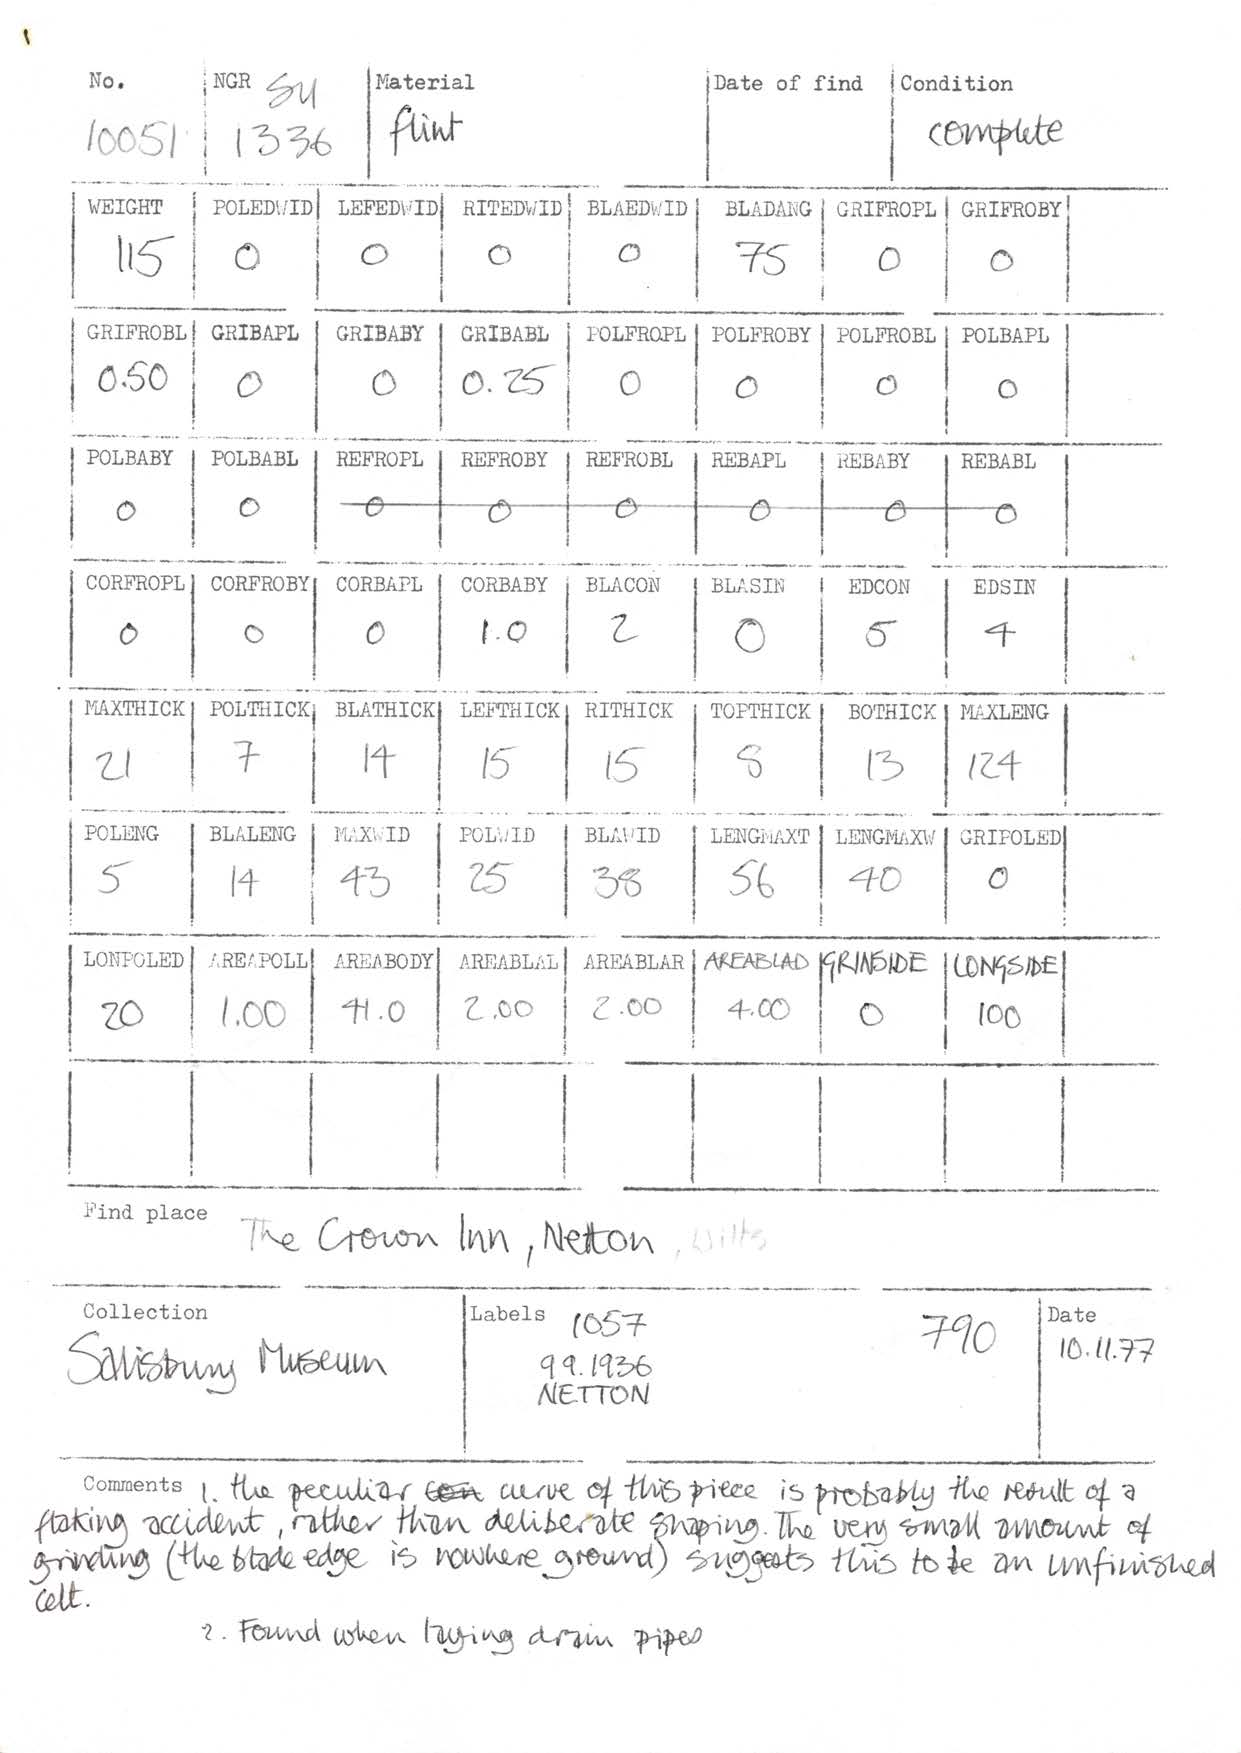 No. NGR SU Material Date of find Condition
10051 1336 flint complete
WEIGHT POLEDWID LEFEDWID RITEDWID BLAEDWID BLADANG GRIFROPL GRIFROBY
115 0 0 0 0 75 0 0
GRIFROBL GRIBAPL GRIBABY GRIBABL POLFROPL POLFROBY POLFROBL POLBAPL
0.50 0 0 0.25 0 0 0 0
POLBABY POLBABL REFROPL REFROBY REFROBL REBAPL REBABY REBABL
0 0 0 0 0 0 0 0
CORFROPL CORFROBY CORBAPL CORBABY BLACON BLASIN EDCON EDSIN
0 0 0 1.0 2 0 5 4
MAXTHICK POLTHICK BLATHICK LEFTHICK RITHICK TOPTHICK BOTHICK MAXLENG
21 7 14 15 15 8 13 124
POLENG BLALENG MAXWID POLWID BLAWID LENGMAXT LENGMAXW GRIPOLED
5 14 43 25 38 56 40 0
LONPOLED AREAPOLL AREABODY AREABLAL AREABLAR AREABLAD GRINSIDE LONGSIDE
20 1.00 41.0 2.00 2.00 4.00 0 100
Find place The Crown Inn, Netton, Wilts
Collection Labels 1057 790 Date
Salisbury Museum 9.9.1936 10.11.77
NETTON
Comments 1. the peculiar con curve of this piece is probably the result of a
flaking accident, rather than deliberate shaping. The very small amount of
grinding (the blade edge is nowhere ground) suggests this to be an unfinished
celt.
2. Found when laying drain pipes